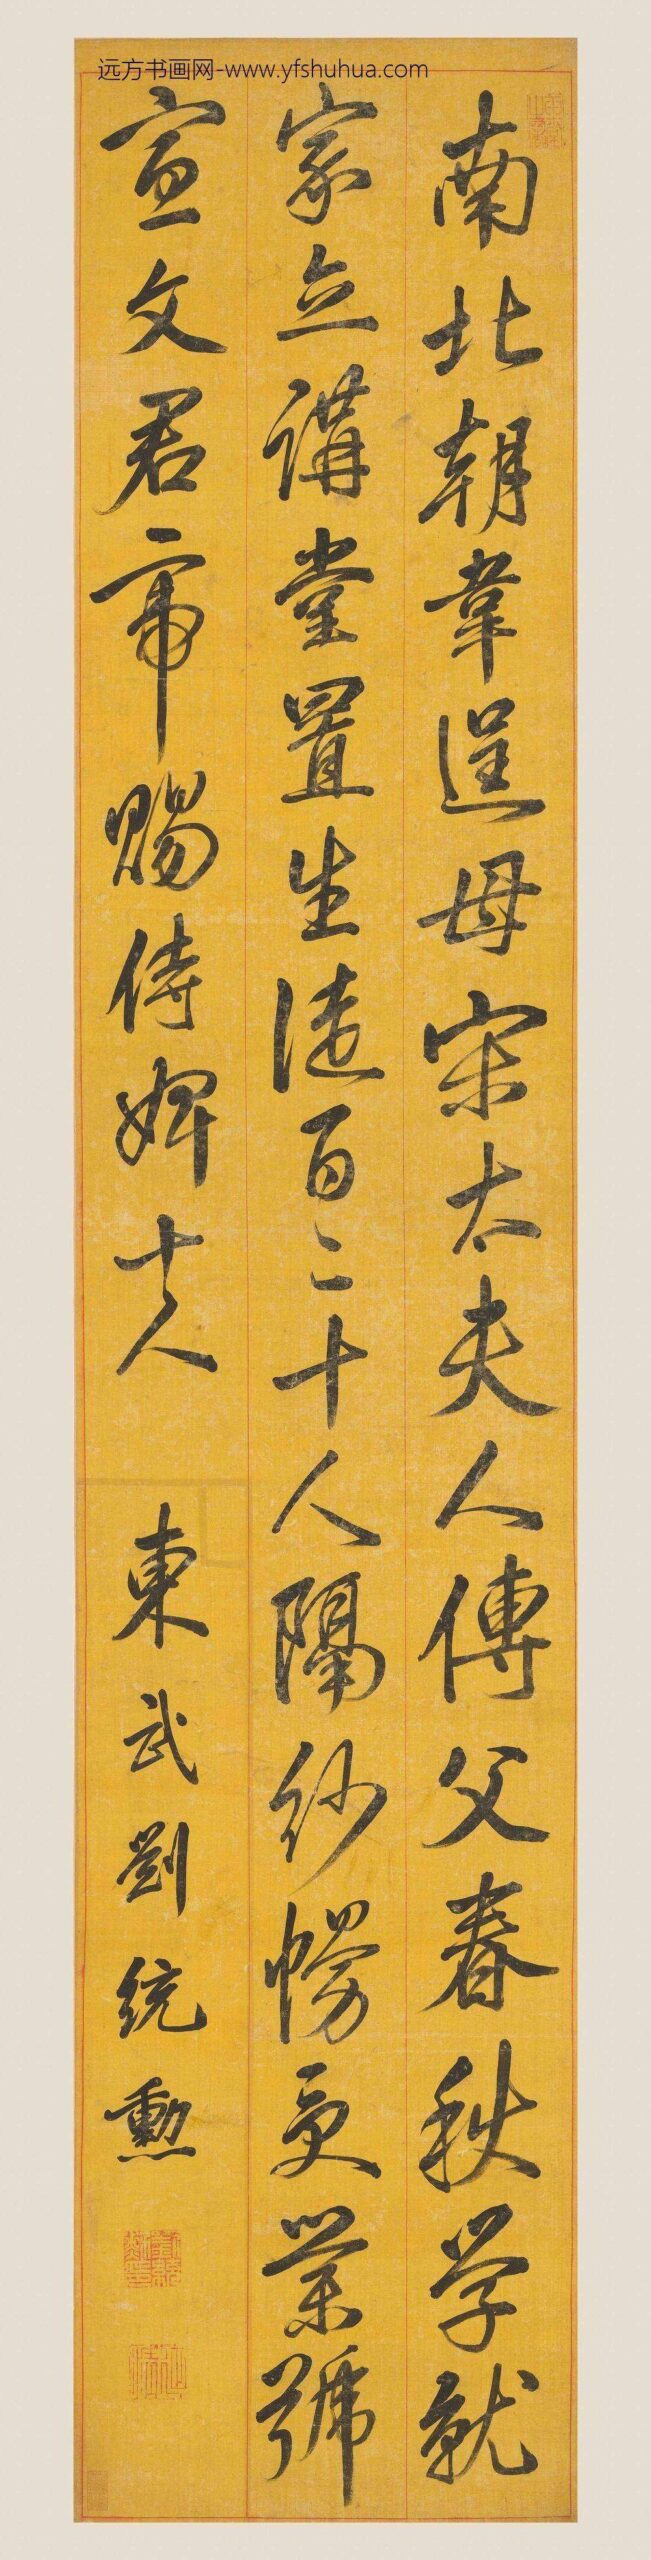 远方书画网-www.yfshuhua.com
南北朝韋逞母宋太夫人傳父春秋学就
家立講堂置生徒百二十人隔紗幔受業號
宣文君帝賜侍婢十人
東武劉統勳